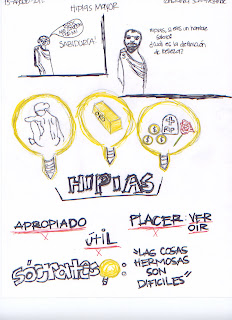 HIPIAS MAYOR
SABIDURÍA!
HIPIAS, SI ERES UN HOMBRE
SABIO?
¿CUÁL ES LA DEFINICIÓN
DE BELLEZA?
RIP
HIPIAS
APROPIADO
ÚTIL
PLACER: VER
OIR
SÓCRATES:
"LAS COSAS
HERMOSAS
SON
DIFICILES"